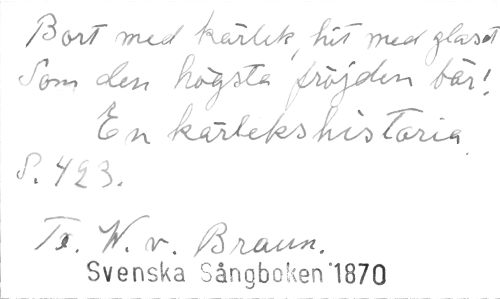 Bort med kärlek, hit med glaset
Som den högsta fröjden bär!
En kärlekshistoria.
S. 423.
Tx. W. v. Braun.
Svenska Sångboken 1870